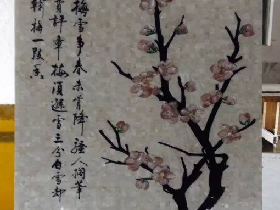 梅雪争春未肯降骚人阁笔
费评章梅须逊雪三分白雪却
输梅一段香